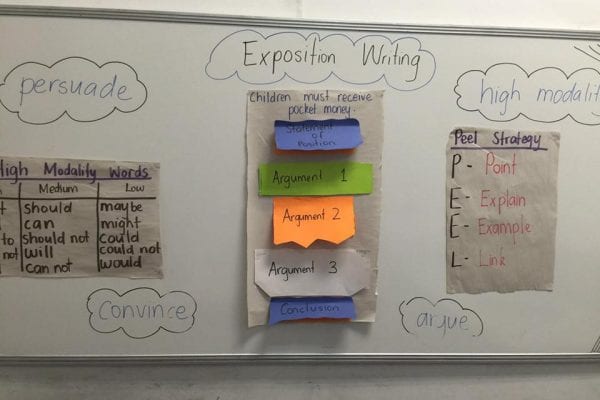 Exposition Writing
persuade
high modality
Children must receive
pocket money.
Statement
of
Position
Argument 1
Argument 2
Argument 3
Conclusion
High Modality Words
Medium Low
should maybe
can might
to should not could
not will could not
can not would
Peel Strategy
P - Point
E - Explain
E - Example
L - Link
convince
argue